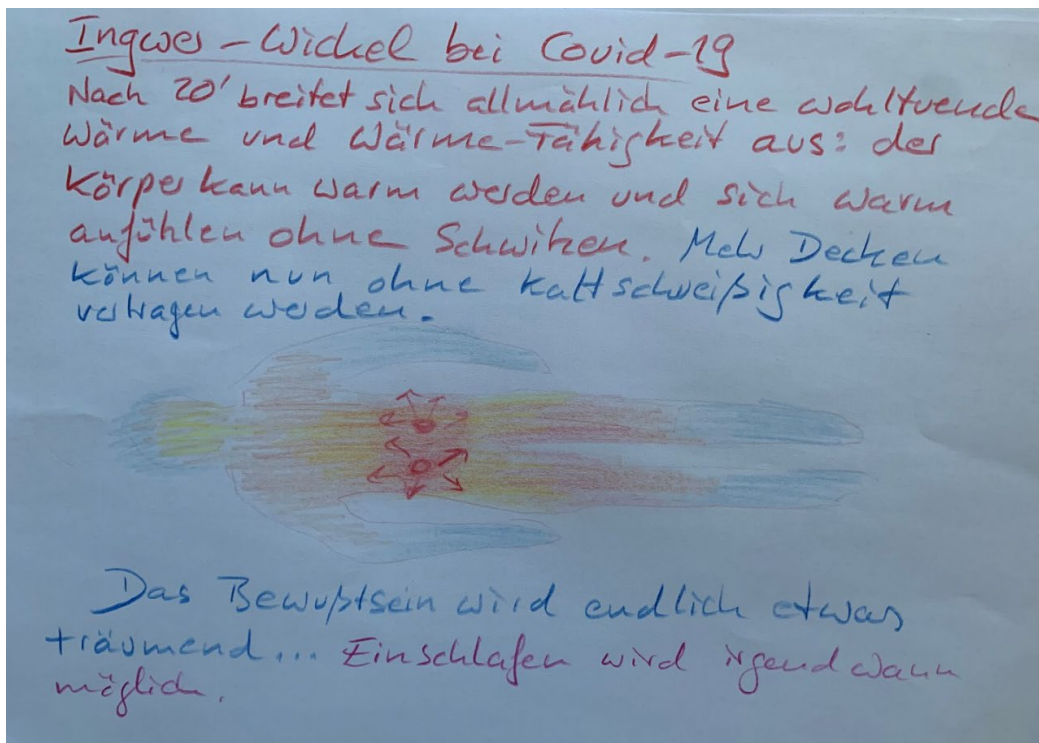 Ingwer-Wickel bei Covid-19
Nach 20' breitet sich allmählich eine wohltuende
Wärme und Wärme-Fähigkeit aus: der
Körper kann warm werden und sich warm
anfühlen ohne Schwitzen. Mehr Decken
können nun ohne Kaltschweißigkeit
vertragen werden.
Das Bewußtsein wird endlich etwas
träumend... Einschlafen wird irgendwann
möglich.